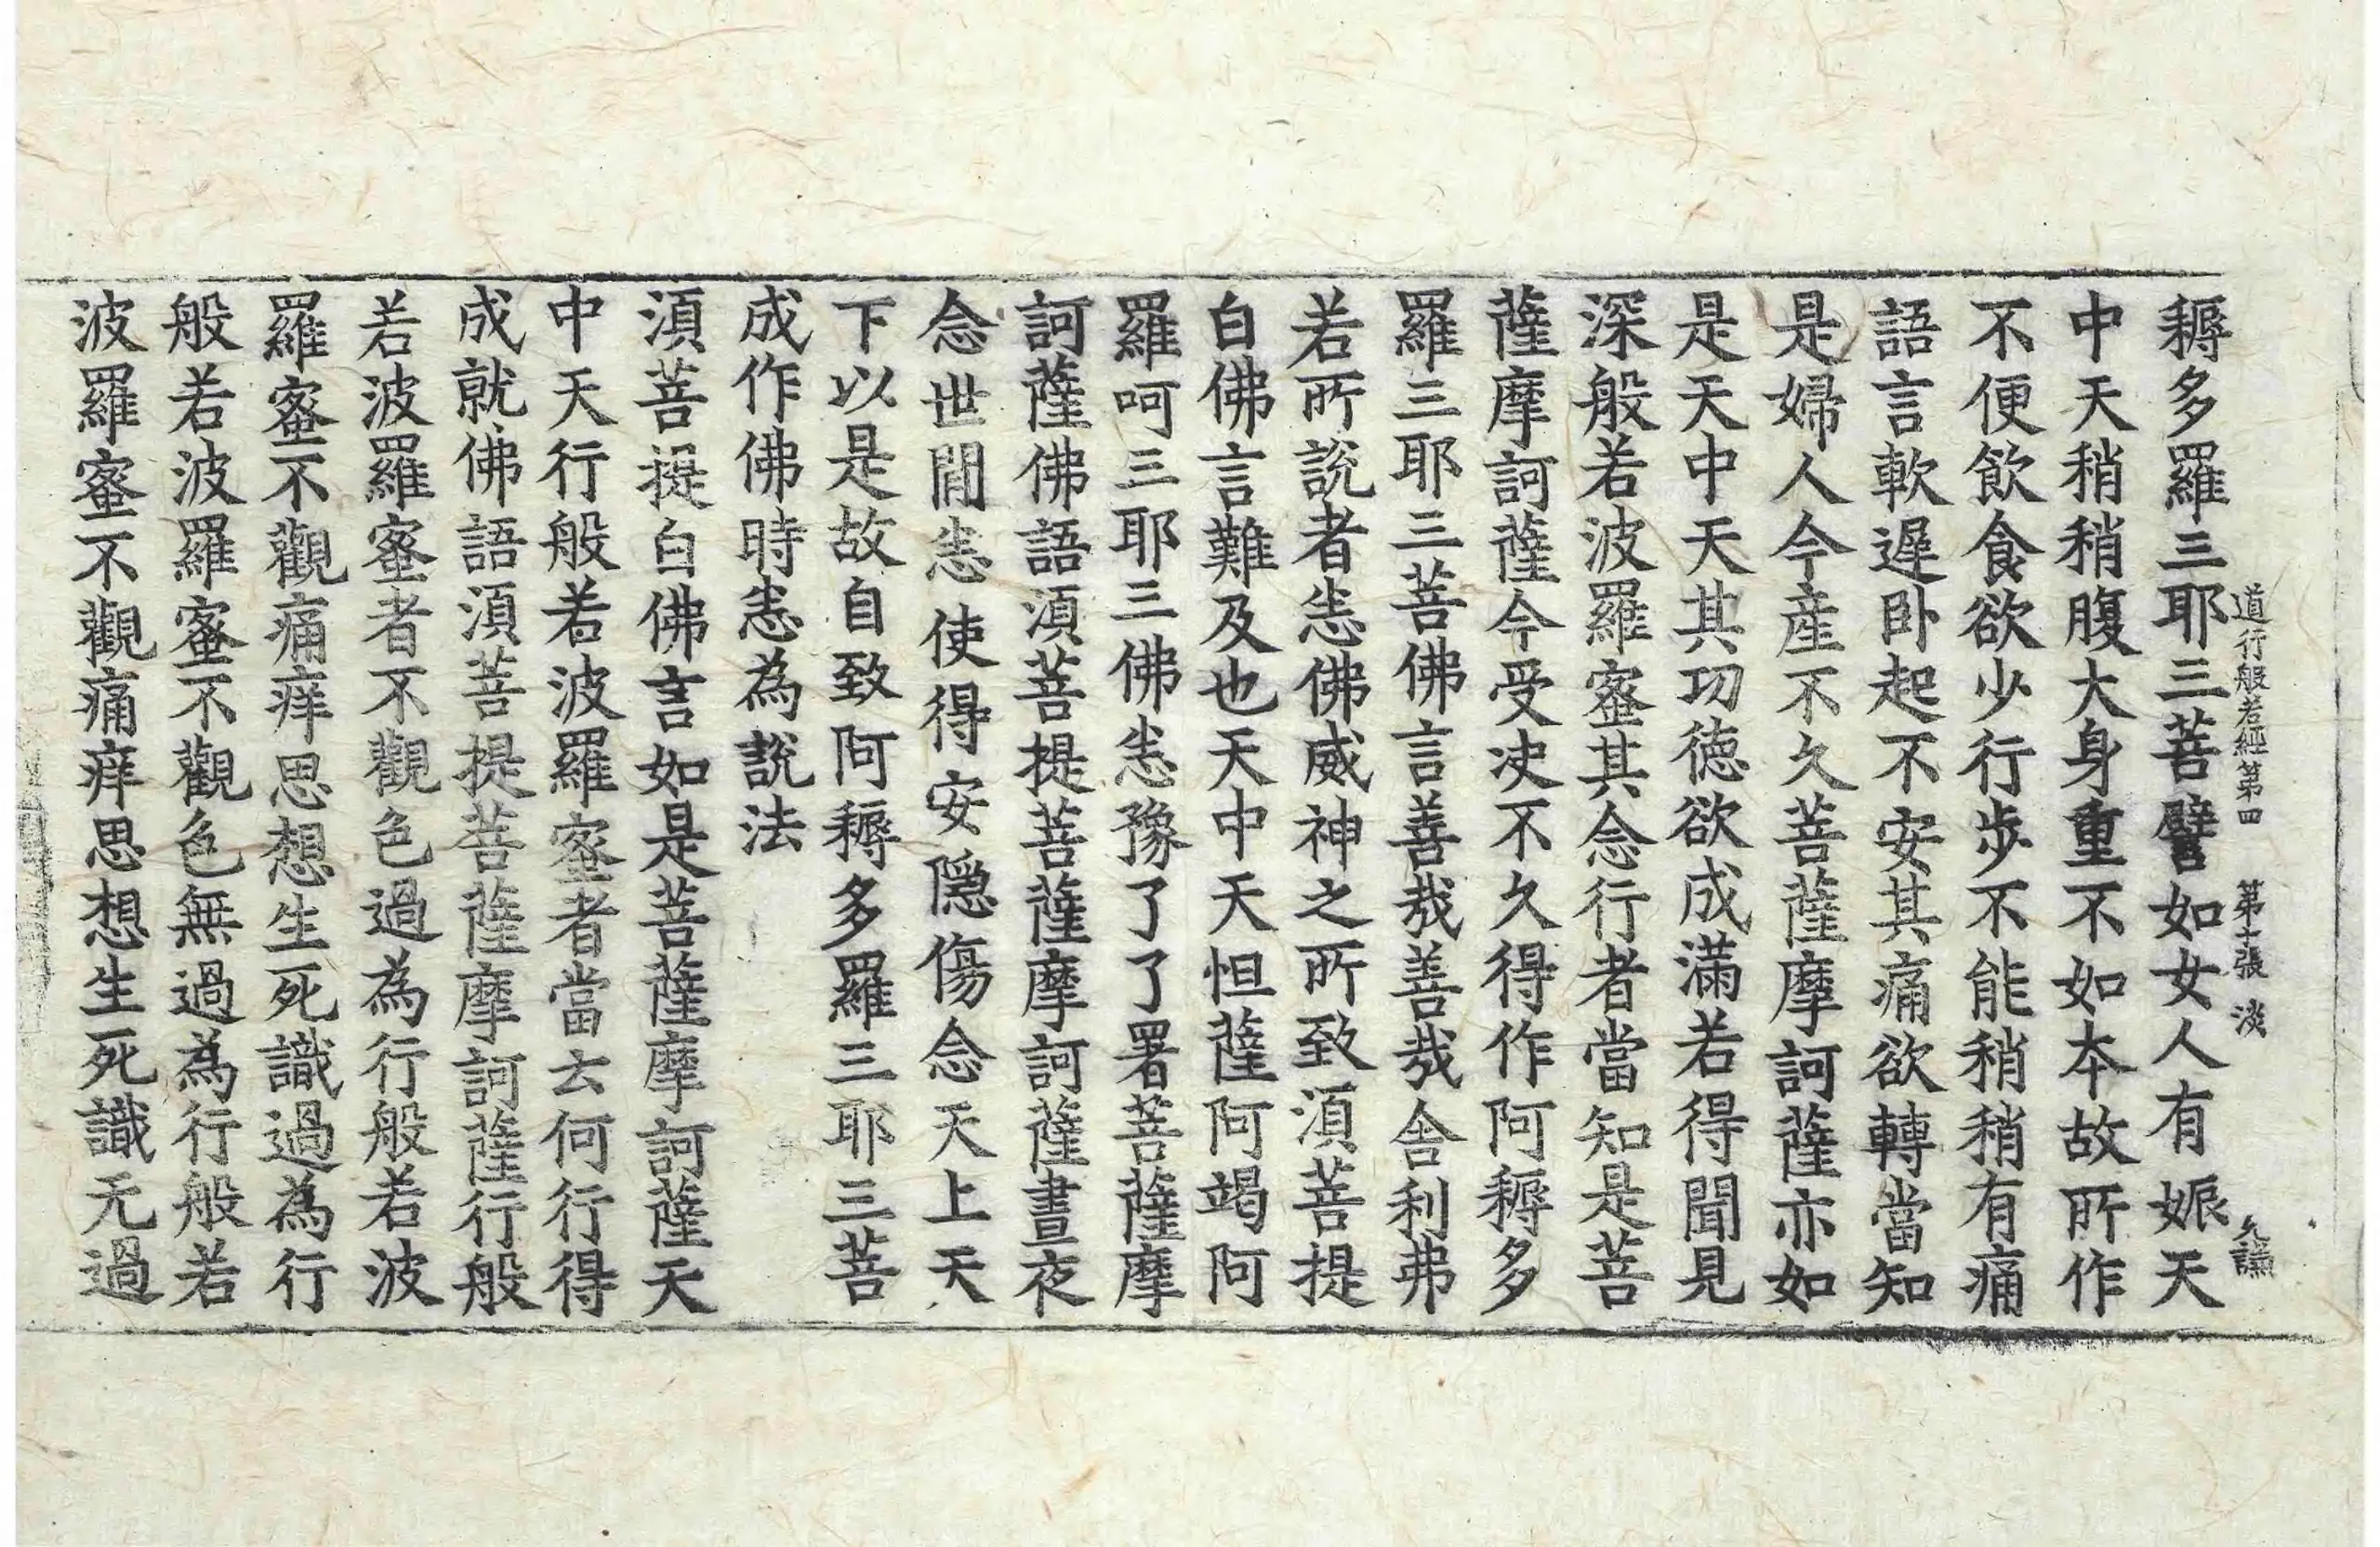 耨多羅三耶三菩譬如女人有娠天
道行般若經第四　第十張　淡
中天稍稍腹大身重不如本故所作
不便飲食欲少行步不能稍稍有痛
語言軟遲卧起不安其痛欲轉當知
是婦人今産不久菩薩摩訶薩亦如
是天中天其功德欲成滿若得聞見
深般若波羅蜜其念行者當知是菩
薩摩訶薩今受决不久得作阿耨多
羅三耶三菩佛言善哉善哉舎利弗
若所說者恚佛威神之所致湏菩提
白佛言難及也天中天怛薩阿竭阿
羅呵三耶三佛恚豫了了署菩薩摩
訶薩佛語湏菩提菩薩摩訶薩晝夜
念世閒恚使得安隱傷念天上天
下以是故自致阿耨多羅三耶三菩
成作佛時恚為說法
湏菩提白佛言如是菩薩摩訶薩天
中天行般若波羅蜜者當云何行得
成就佛語湏菩提菩薩摩訶薩行般
若波羅蜜者不觀色過為行般若波
羅蜜不觀痛痒思想生死識過為行
般若波羅蜜不觀色無過為行般若
波羅蜜不觀痛痒思想生死識无過